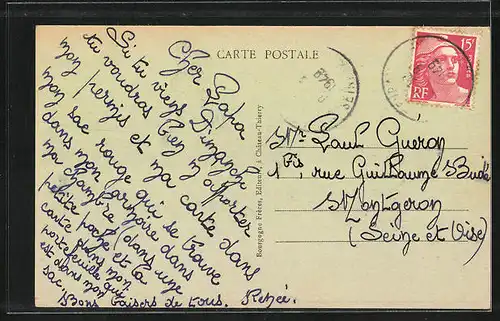 CARTE POSTALE
15F
RF
1948
Cher Papa
Si tu viens Dimanche
tu voudras bien m'apporter
mon permis et ma carte dans
mon sac rouge qui se trouve
dans mon armoire dans
ma chambre (dans une
petite poche et la
carte dans mon
portefeuille qui
est dans mon
sac.
Bons baisers de tous. Renée.
Bourgogne Frères, Editeurs à Château-Thierry
Mr Paul Gueron
1 bis, rue Guillaume Budé
Montgeron
(Seine et Oise)